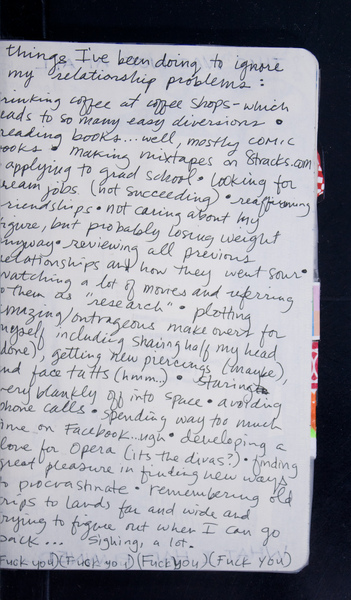 things I've been doing to ignore
my relationship problems:
rinking coffee at coffee shops - which
eads to so many easy diversions •
reading books... well, mostly comic
ooks • making mixtapes on 8tracks.com
applying to grad school • looking for
ream jobs (not succeeding) • reaffirming
riendships • not caring about my
igure, but probably losing weight
nyway • reviewing all previous
elationships and how they went sour •
watching a lot of movies and referring
o them as "research" • plotting
mazing/outrageous makeovers for
myself including shaving half my head
done), getting new piercings (maybe),
nd face tatts (hmm...) • staring
very blankly off into space • avoiding
phone calls • spending way too much
ime on Facebook...ugh • developing a
love for Opera (its the divas?) • finding
great pleasure in finding new ways
o procrastinate • remembering old
rips to lands far and wide and
rying to figure out when I can go
back... sighing, a lot.
Fuck you)(Fuck you)(Fuck you)(Fuck you)